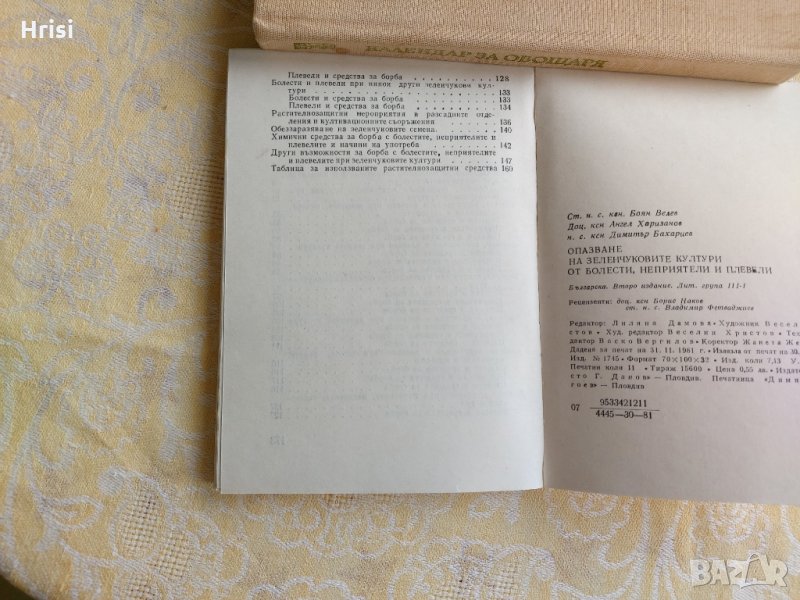 Hrisi
КАЛЕНДАР ЗА ОВОЩАРЯ
Плевели и средства за борба . . . . . . . . . . . 128
Болести и плевели при някои други зеленчукови кул-
тури . . . . . . . . . . . . . . . . . . . . . 133
Болести и средства за борба . . . . . . . . . . . 133
Плевели и средства за борба . . . . . . . . . . . 134
Растителнозащитни мероприятия в разсадните отде-
ления и култивационни съоръжения . . . . . . . . 136
Обеззаразяване на зеленчуковите семена. . . . . . . 140
Химически средства за борба с болестите, неприятелите и
плевелите и начини на употреба . . . . . . . . . 142
Други възможности за борба с болестите, неприятелите
и плевелите при зеленчуковите култури . . . . . . 147
Таблица за използваните растителнозащитни средства 160
Ст. н. с. ксн. Боян Велев
Доц. ксн Ангел Харизанов
н. с. ксн Димитър Бахариев
ОПАЗВАНЕ
НА ЗЕЛЕНЧУКОВИТЕ КУЛТУРИ
ОТ БОЛЕСТИ, НЕПРИЯТЕЛИ И ПЛЕВЕЛИ
Българска. Второ издание. Лит. група III-1
Рецензенти: доц. ксн Борис Наков
ст. н. с. Владимир Фетваджиев
Редактор: Лиляна Дамова • Художник Весел
стов • Худ. редактор Веселин Христов • Тех
дактор Васко Вергилов • Коректор Жанета Же
Дадена за печат на 31. 11. 1981 г. • Излязла от печат на 30.
Изд. № 1745 • Формат 70×100×32 • Изд. коли 7,13 У.
Печатни коли 11 • Тираж 15600 • Цена 0,55 лв. • Издате
сто Г. Данов» — Пловдив. Печатница «Дими
гоев» — Пловдив
07 9533421211
4445—30—81
BAZAR